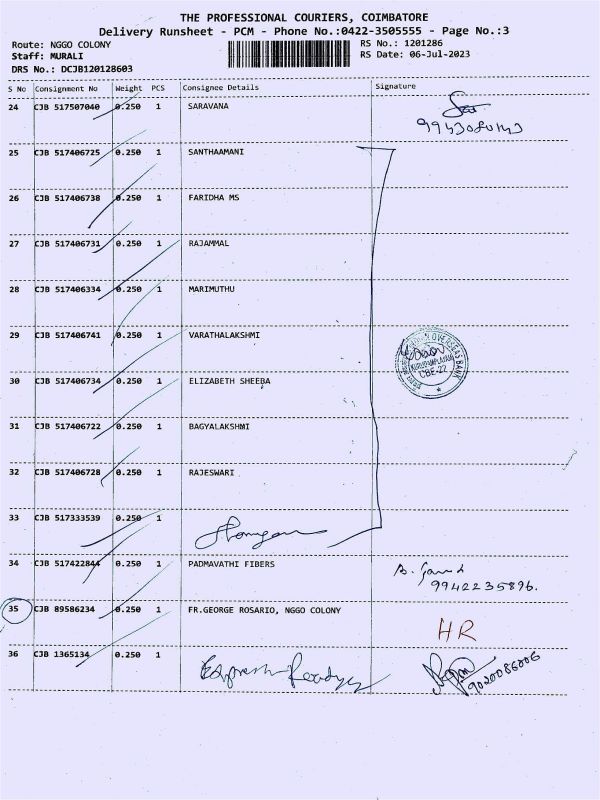 THE PROFESSIONAL COURIERS, COIMBATORE
Delivery Runsheet - PCM - Phone No.:0422-3505555 - Page No.:3
Route: NGGO COLONY RS No.: 1201286
Staff: MURALI RS Date: 06-Jul-2023
DRS No.: DCJB120128603
S No Consignment No Weight PCS Consignee Details Signature
24 CJB 517507040 0.250 1 SARAVANA
25 CJB 517406725 0.250 1 SANTHAAMANI
26 CJB 517406738 0.250 1 FARIDHA MS
27 CJB 517406731 0.250 1 RAJAMMAL
28 CJB 517406334 0.250 1 MARIMUTHU
29 CJB 517406741 0.250 1 VARATHALAKSHMI
30 CJB 517406734 0.250 1 ELIZABETH SHEEBA
OVERSEAS BANK
CBE-22
31 CJB 517406722 0.250 1 BAGYALAKSHMI
32 CJB 517406728 0.250 1 RAJESWARI
33 CJB 517333539 0.250 1
34 CJB 517422844 0.250 1 PADMAVATHI FIBERS
9942235896.
35 CJB 89586234 0.250 1 FR.GEORGE ROSARIO, NGGO COLONY
HR
36 CJB 1365134 0.250 1
9020086206